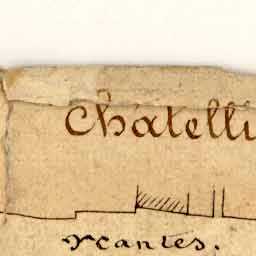 Chatelli
Nantes.